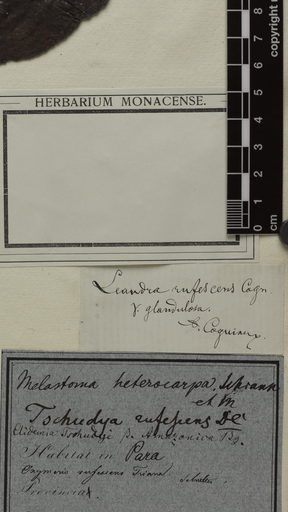 8
7
6
5
4
3
2
1
0
cm
copyright
HERBARIUM MONACENSE.
Leandra rufescens Cogn
γ. glandulosa.
A. Cogniaux
Melastoma heterocarpa. Schrank
et M
Tschudya rufescens DC
Clidemia Tschudyi β. Amazonica Bg.
Habitat in Para
Oxymeris rufescens Triana
Provincia